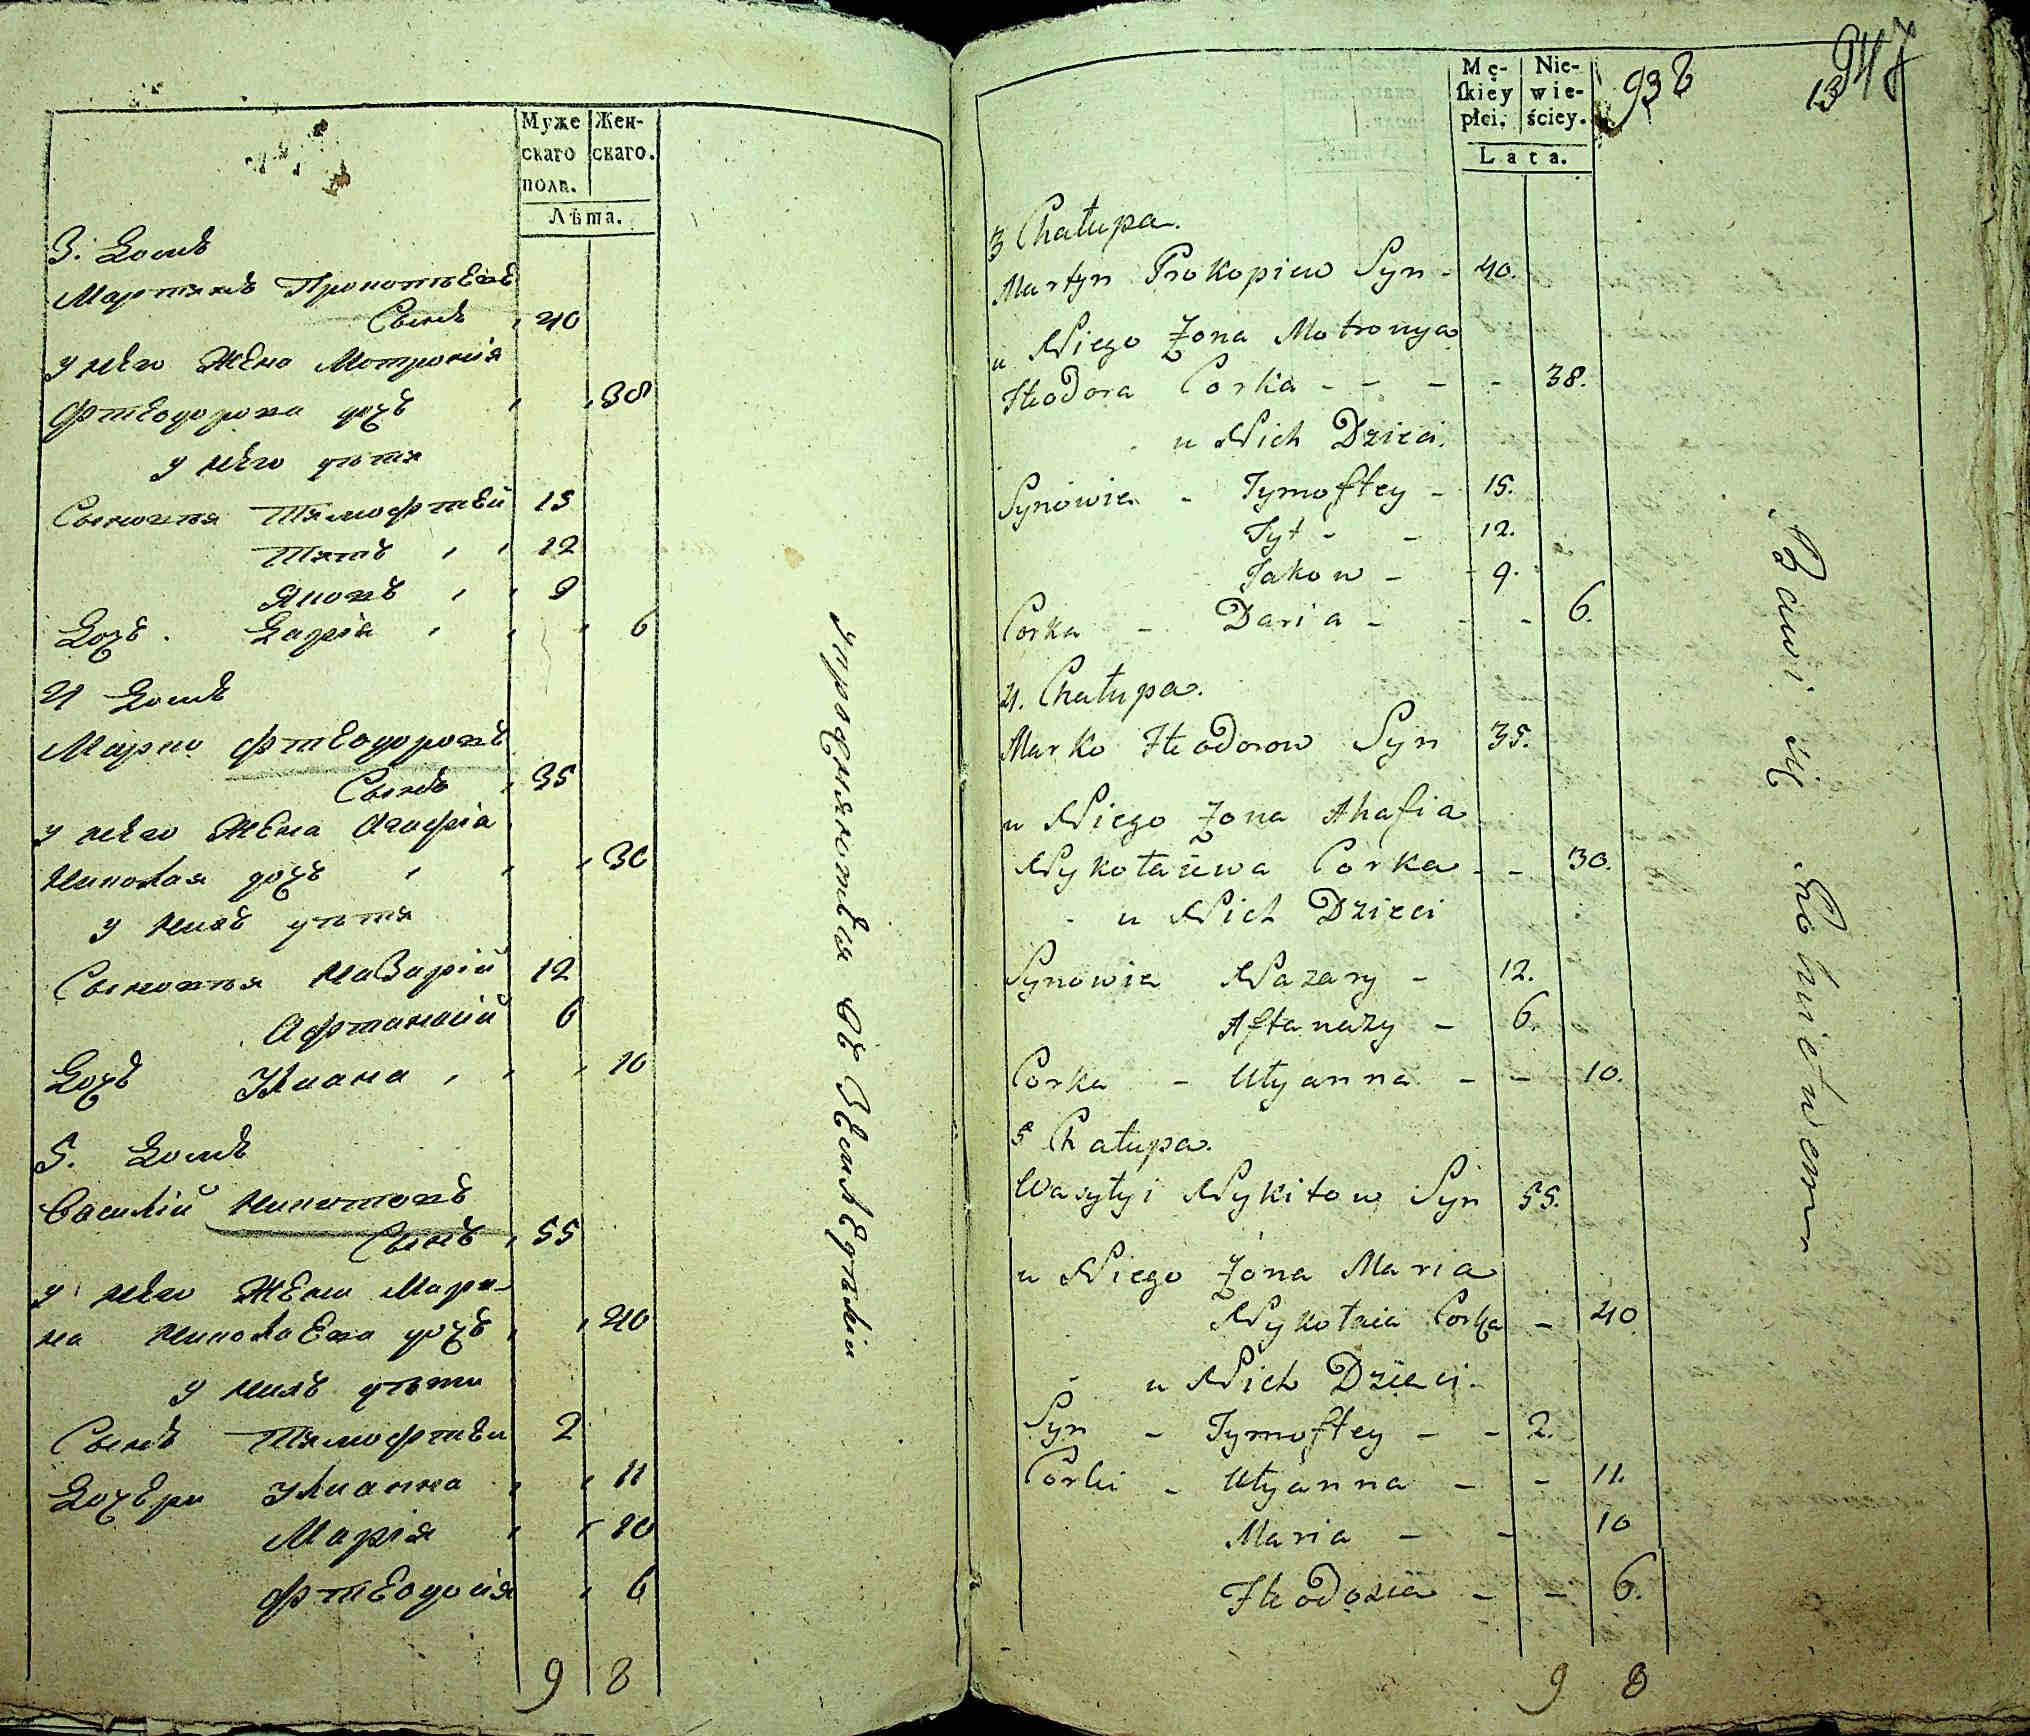 Муже
скаго
пола.
Жен-
скаго.
Лѣта.
3. Домъ
Мартинъ Прокопіевъ
Сынъ , 40
у него Жена Мотронія
Фтеодорова дочъ , , 38
у него дѣти
Сыновья Тимофтей 15
Титъ , , 12
Яковъ , , 9
Дочъ. Дарія , , , 6
4 Домъ
Марко Фтеодоровъ
Сынъ , 35
у него Жена Агафія
Николая дочъ , , , 30
у нихъ дѣти
Сыновья Назарій 12
Афтанасій 6
Дочъ Улиана , , , 10
5. Домъ
Василій Никитовъ
Сынъ , 55
у него Жена Мари-
на Николаева дочъ , , 40
у нихъ дѣти
Сынъ Тимофтей 2
Дочери Улианна , , 11
Марія , , 10
Фтеодосія , 6
9 8
упрожняютъся въ Земледѣліи
Mę-
ſkiey
płci.
Nie-
wie-
ściey.
Lata.
938
13
3 Chałupa.
Martyn Prokopiew Syn - 40.
u Niego Żona Motronya
Fteodora Corka - - - - 38.
u Nich Dzieci.
Synowie - Tymoftey - 15.
Tyt - - 12.
Jakow - - 9.
Corka - Daria - - - 6.
4. Chałupa.
Marko Fteodorow Syn 35.
u Niego Żona Ahafia
Nykołaiewa Corka - - 30.
- u Nich Dzieci
Synowie Nazary - 12.
Aftanazy - 6.
Corka - Ulyanna - - 10.
5 Chałupa.
Wasyłyi Nykitow Syn 55.
u Niego Żona Maria
Nykołaia Corka - 40
- u Nich Dzieci -
Syn - Tymoftey - - 2.
Corki - Ulyanna - - 11.
Maria - - 10
Fteodozia - - 6.
9 8
Bawi się Rolnictwem